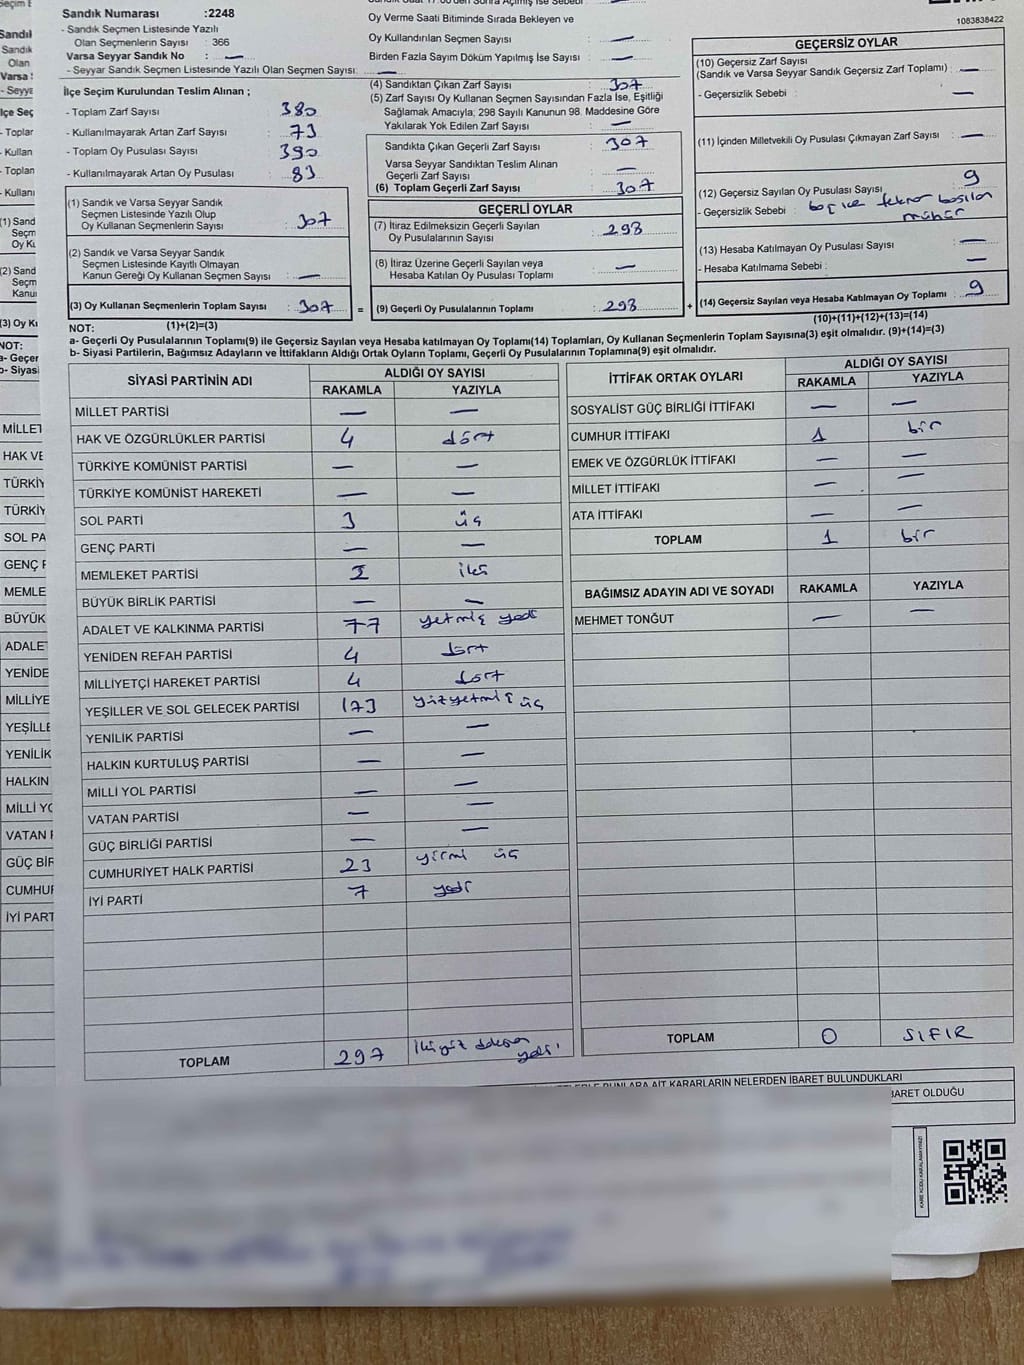 1083838422
Sandık Numarası :2248
- Sandık Seçmen Listesinde Yazılı
Olan Seçmenlerin Sayısı : 366
Varsa Seyyar Sandık No : —
- Seyyar Sandık Seçmen Listesinde Yazılı Olan Seçmen Sayısı: —
İlçe Seçim Kurulundan Teslim Alınan ;
- Toplam Zarf Sayısı 380
- Kullanılmayarak Artan Zarf Sayısı : 73
- Toplam Oy Pusulası Sayısı : 390
- Kullanılmayarak Artan Oy Pusulası : 83
(1) Sandık ve Varsa Seyyar Sandık
Seçmen Listesinde Yazılı Olup
Oy Kullanan Seçmenlerin Sayısı : 307
(2) Sandık ve Varsa Seyyar Sandık
Seçmen Listesinde Kayıtlı Olmayan
Kanun Gereği Oy Kullanan Seçmen Sayısı : —
(3) Oy Kullanan Seçmenlerin Toplam Sayısı : 307
(1)+(2)=(3)
Oy Verme Saati Bitiminde Sırada Bekleyen ve
Oy Kullandırılan Seçmen Sayısı : —
Birden Fazla Sayım Döküm Yapılmış İse Sayısı : —
(4) Sandıktan Çıkan Zarf Sayısı : 307
(5) Zarf Sayısı Oy Kullanan Seçmen Sayısından Fazla İse, Eşitliği
Sağlamak Amacıyla; 298 Sayılı Kanunun 98. Maddesine Göre
Yakılarak Yok Edilen Zarf Sayısı : —
Sandıkta Çıkan Geçerli Zarf Sayısı : 307
Varsa Seyyar Sandıktan Teslim Alınan
Geçerli Zarf Sayısı : —
(6) Toplam Geçerli Zarf Sayısı : 307
GEÇERLİ OYLAR
(7) İtiraz Edilmeksizin Geçerli Sayılan
Oy Pusulalarının Sayısı : 298
(8) İtiraz Üzerine Geçerli Sayılan veya
Hesaba Katılan Oy Pusulası Toplamı : —
= (9) Geçerli Oy Pusulalarının Toplamı : 298 +
GEÇERSİZ OYLAR
(10) Geçersiz Zarf Sayısı
(Sandık ve Varsa Seyyar Sandık Geçersiz Zarf Toplamı) : —
- Geçersizlik Sebebi : —
(11) İçinden Milletvekili Oy Pusulası Çıkmayan Zarf Sayısı : —
(12) Geçersiz Sayılan Oy Pusulası Sayısı : 9
- Geçersizlik Sebebi : basılan
mühür
(13) Hesaba Katılmayan Oy Pusulası Sayısı : —
- Hesaba Katılmama Sebebi : —
(14) Geçersiz Sayılan veya Hesaba Katılmayan Oy Toplamı : 9
(10)+(11)+(12)+(13)=(14)
NOT:
a- Geçerli Oy Pusulalarının Toplamı(9) ile Geçersiz Sayılan veya Hesaba katılmayan Oy Toplamı(14) Toplamları, Oy Kullanan Seçmenlerin Toplam Sayısına(3) eşit olmalıdır. (9)+(14)=(3)
b- Siyasi Partilerin, Bağımsız Adayların ve İttifakların Aldığı Ortak Oyların Toplamı, Geçerli Oy Pusulalarının Toplamına(9) eşit olmalıdır.
SİYASİ PARTİNİN ADI ALDIĞI OY SAYISI
RAKAMLA YAZIYLA
MİLLET PARTİSİ — —
HAK VE ÖZGÜRLÜKLER PARTİSİ 4 dört
TÜRKİYE KOMÜNİST PARTİSİ — —
TÜRKİYE KOMÜNİST HAREKETİ — —
SOL PARTİ 3 üç
GENÇ PARTİ — —
MEMLEKET PARTİSİ 2 iki
BÜYÜK BİRLİK PARTİSİ — —
ADALET VE KALKINMA PARTİSİ 77 yetmiş yedi
YENİDEN REFAH PARTİSİ 4 dört
MİLLİYETÇİ HAREKET PARTİSİ 4 dört
YEŞİLLER VE SOL GELECEK PARTİSİ 173 yüzyetmiş üç
YENİLİK PARTİSİ — —
HALKIN KURTULUŞ PARTİSİ — —
MİLLİ YOL PARTİSİ — —
VATAN PARTİSİ — —
GÜÇ BİRLİĞİ PARTİSİ — —
CUMHURİYET HALK PARTİSİ 23 yirmi üç
İYİ PARTİ 7 yedi
TOPLAM 297 ikiyüz doksan
yedi
İTTİFAK ORTAK OYLARI ALDIĞI OY SAYISI
RAKAMLA YAZIYLA
SOSYALİST GÜÇ BİRLİĞİ İTTİFAKI — —
CUMHUR İTTİFAKI 1 bir
EMEK VE ÖZGÜRLÜK İTTİFAKI — —
MİLLET İTTİFAKI — —
ATA İTTİFAKI — —
TOPLAM 1 bir
BAĞIMSIZ ADAYIN ADI VE SOYADI RAKAMLA YAZIYLA
MEHMET TONĞUT — —
TOPLAM 0 SIFIR
BUNLARA AİT KARARLARIN NELERDEN İBARET BULUNDUKLARI
BARET OLDUĞU